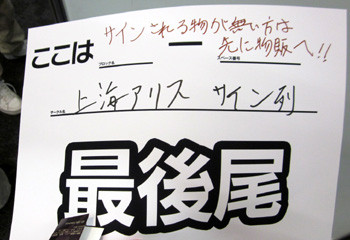 サインされる物が無い方は
先に物販へ!!
ここは
ー
ブロック名
スペース番号
サークル名
上海アリス サイン列
最後尾